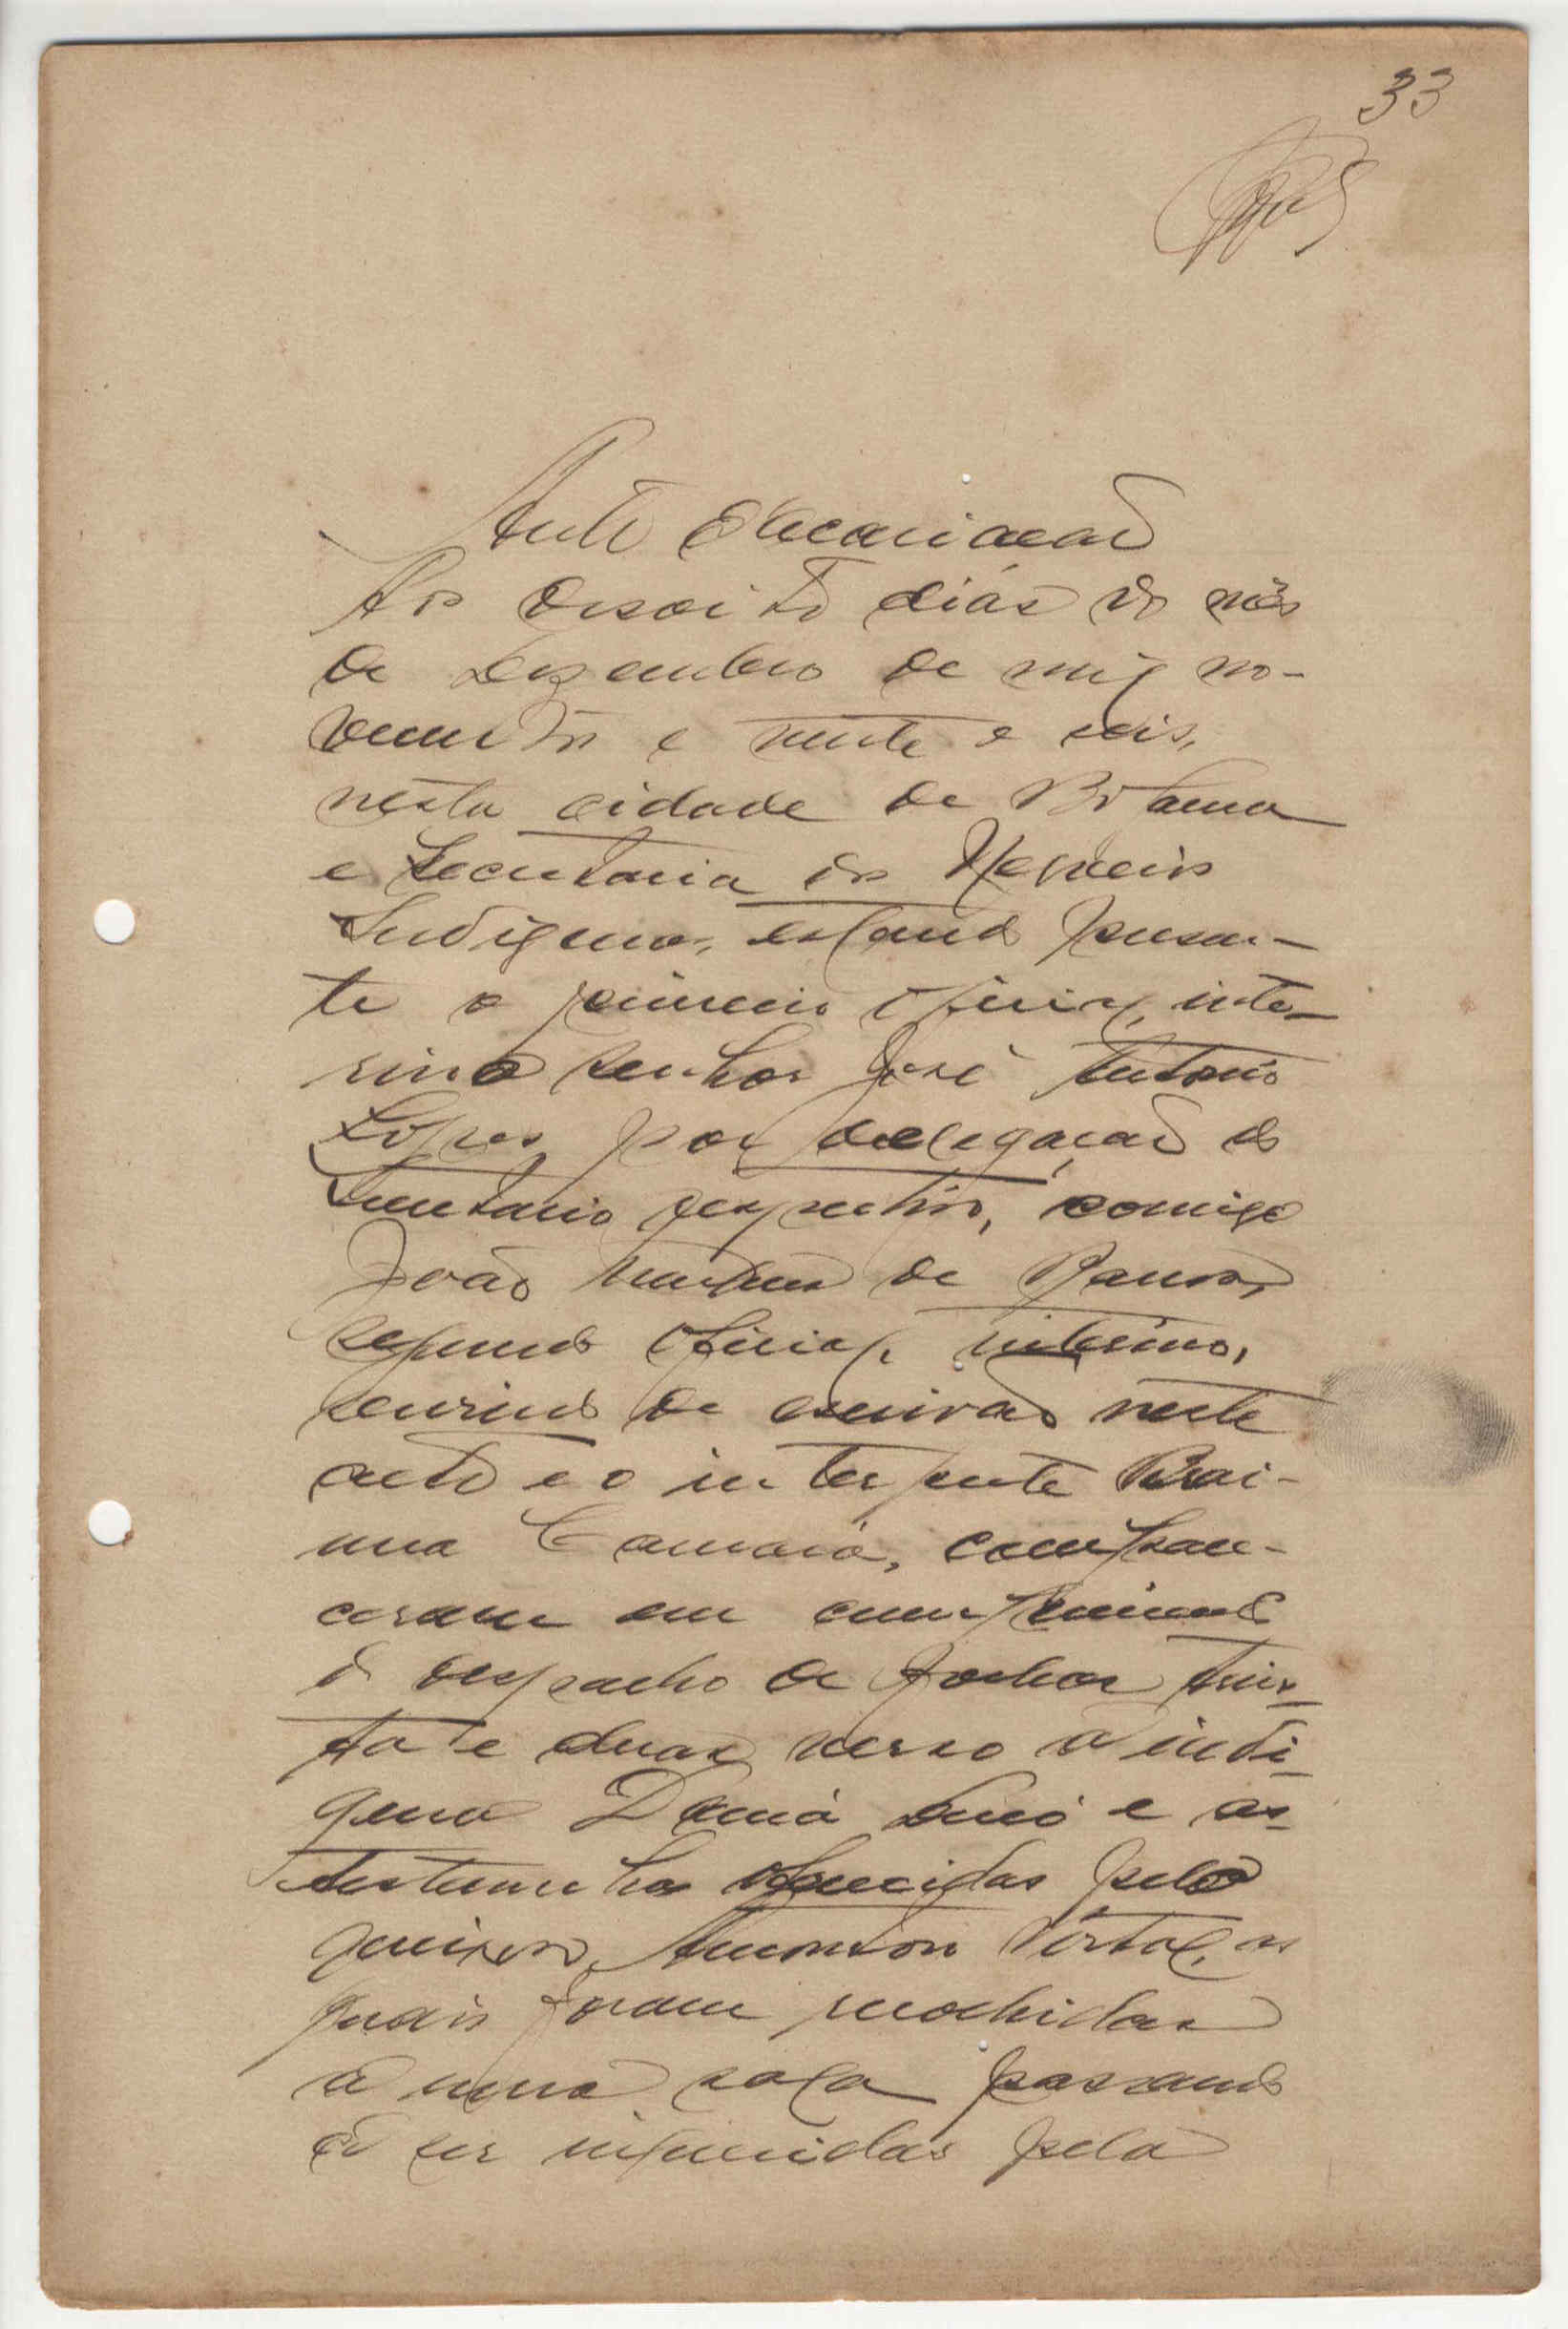 33
Auto
Aos desoito dias do mês
de Dezembro de mil no-
vecentos e vinte e seis,
nesta cidade de Bolama
e Secretaria dos Negocios
Indigenas, estando presen-
te o primeiro oficial, inte-
rino senhor José Antonio
Lopes, por delegação do
Secretario respectivo, comigo
João de
segundo oficial, interino,
servindo de escrivão neste
acto e o interprete Brai-
ma Camará, compare-
ceram em cumprimento
do despacho de folhas trin-
ta e duas verso a indi-
gena e as
testemunhas oferecidas pelo
queixoso, as
quais foram recolhidas
a uma sala passando
a ser inqueridas pela